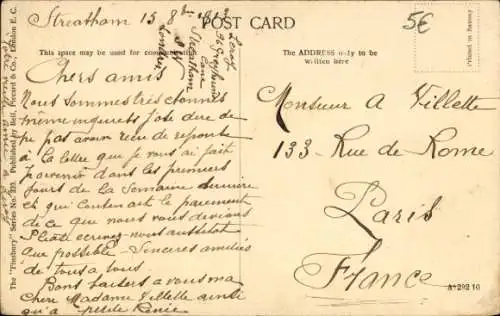 Streatham 15 8
POST CARD
5€
This space may be used for communication
The ADDRESS only to be
written here
Printed in Saxony
Leroy
36 Greyhound
Lane
Streatham
SW
Londres
Chers amis
Nous sommes très étonnés
même inquiets j'ose dire de
ne pas avoir reçu de réponse
à la lettre que je vous ai fait
parvenir dans les premiers
jours de la Semaine dernière
et qui contenait le paiement
de ce que nous vous devions
écrivez-nous aussitôt
que possible - Sincères amitiés
de tous à tous.
Bons baisers à vous ma
Chère Madame Villette ainsi
qu'à petite Renée
Monsieur A Villette
133 Rue de Rome
Paris
France
A 292 10
The "Finsbury" Series No. Published by Beil, Howard & Co., London E.C.